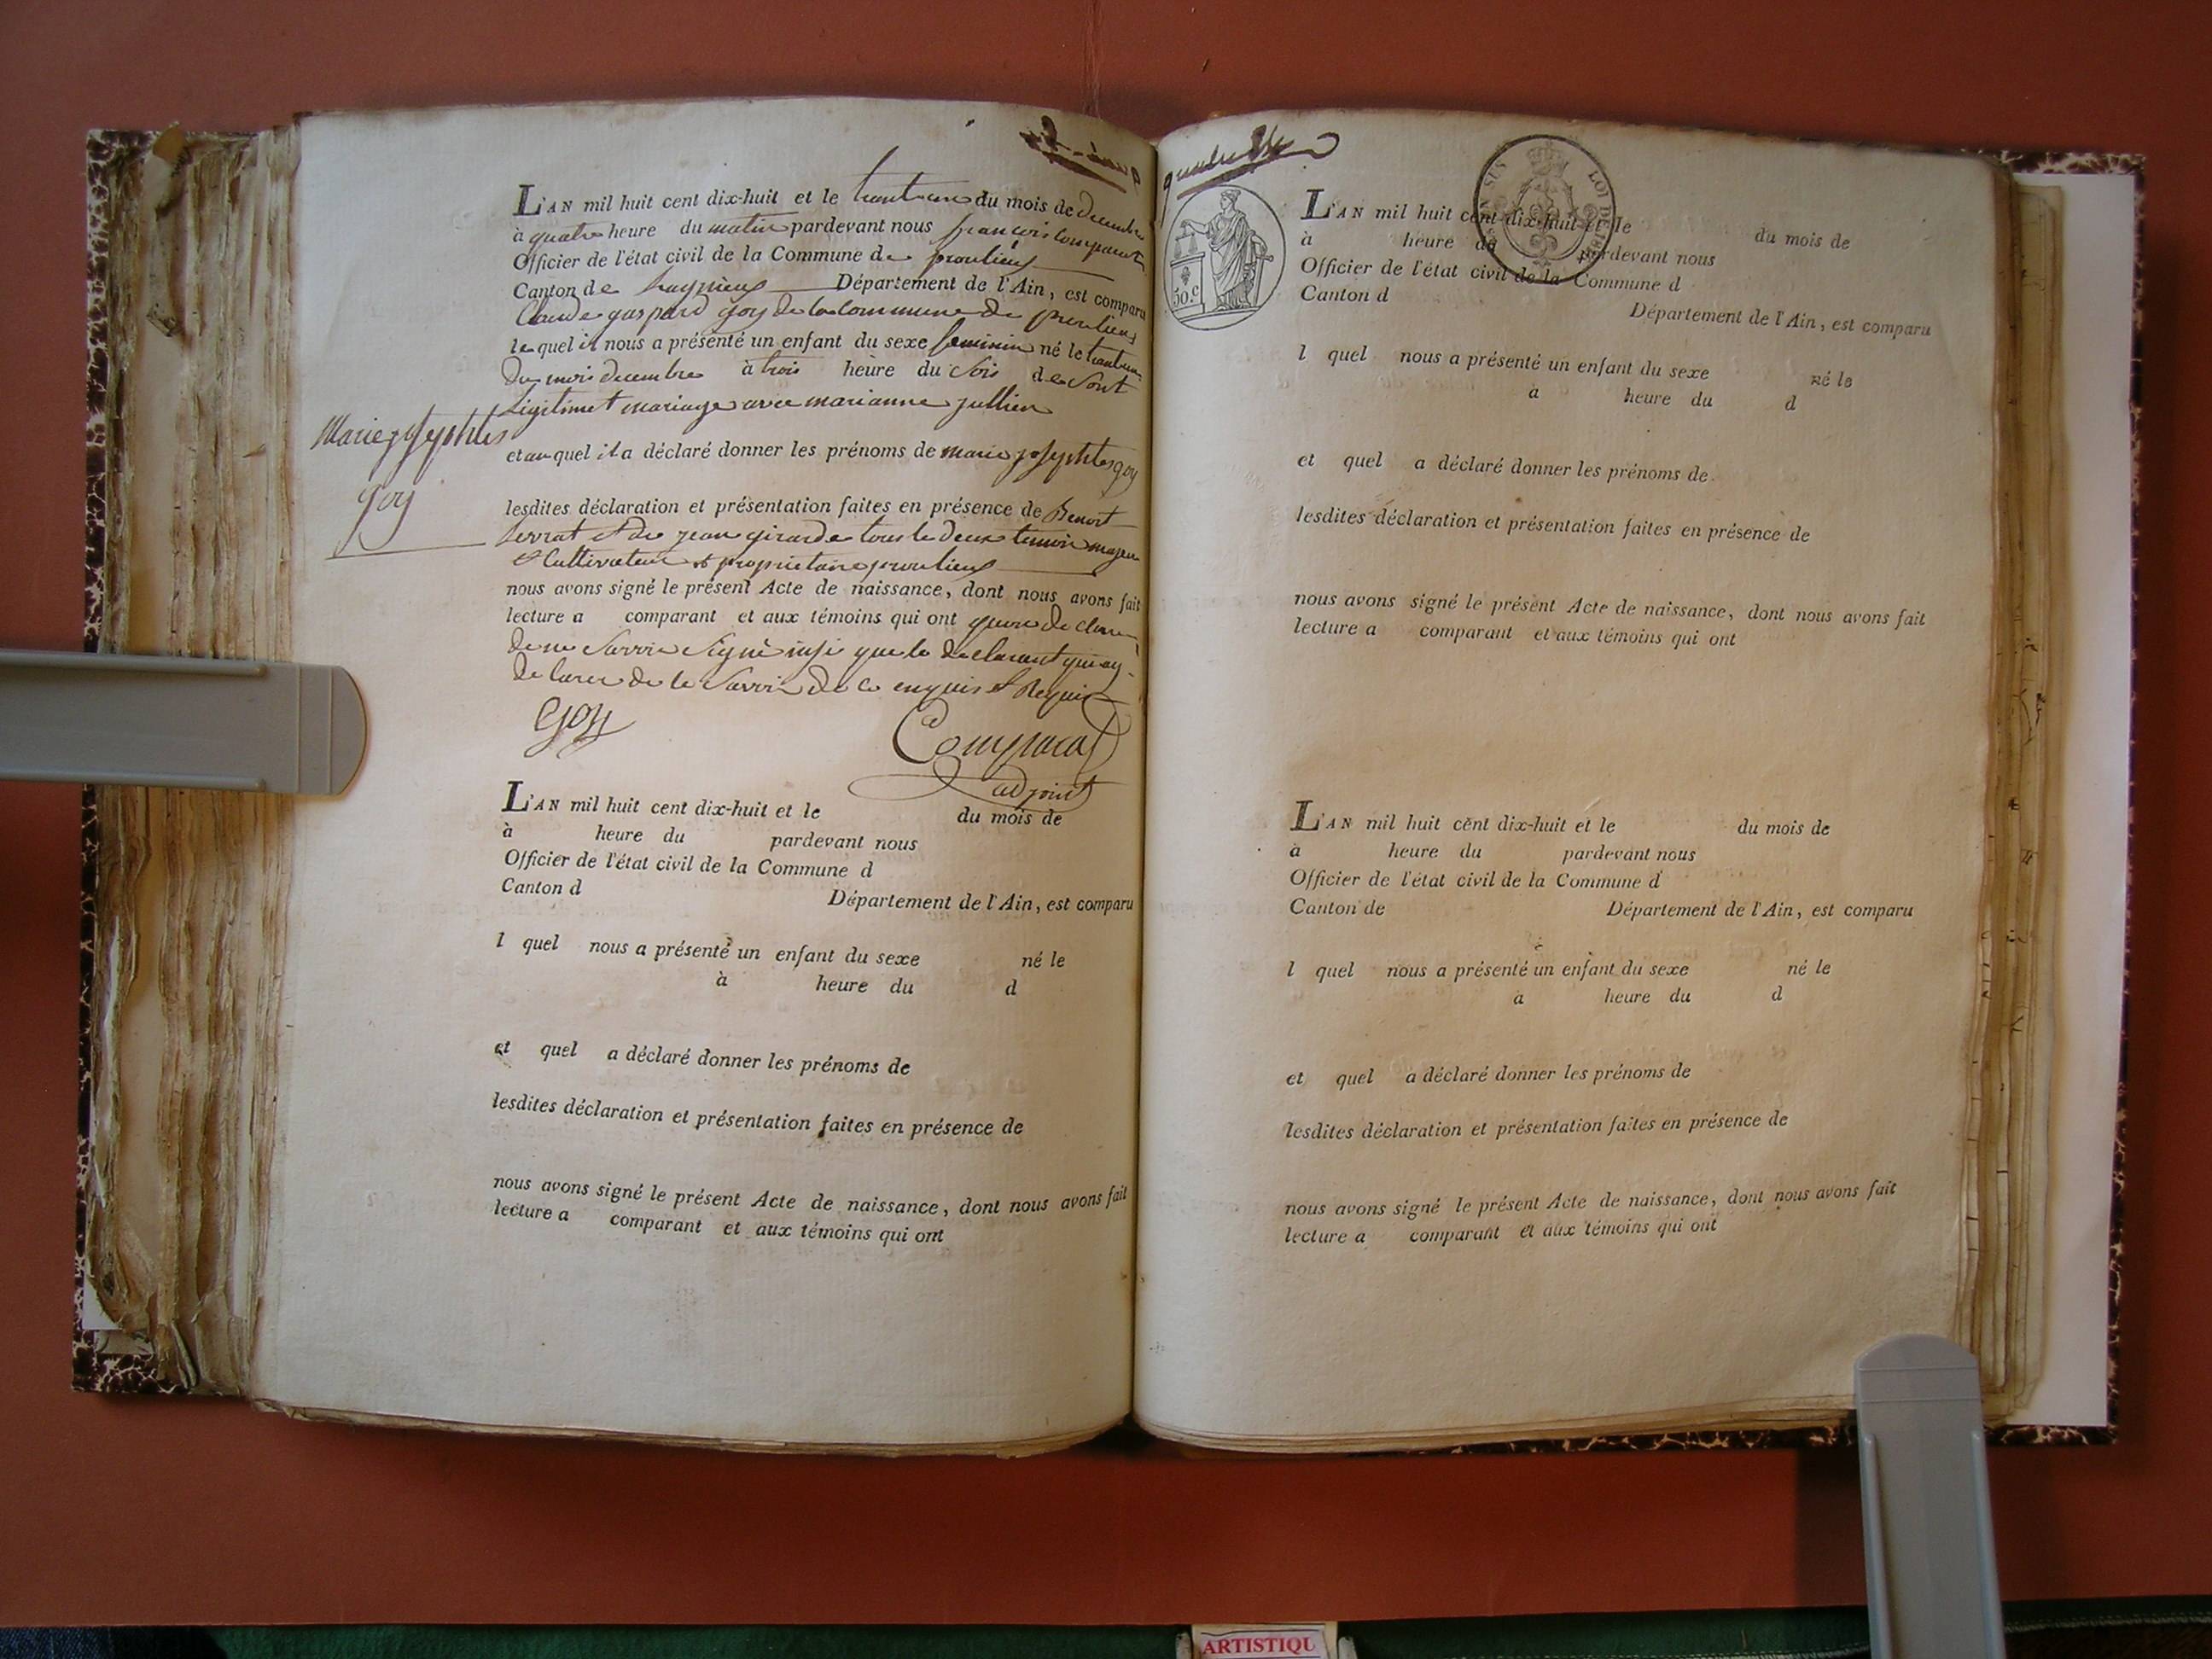 L'AN mil huit cent dix-huit et le trentun du mois de decembre
à quatre heure du matin pardevant nous francois Comparat
Officier de l'état civil de la Commune de proulieu
Canton de Département de l'Ain, est comparu
Claude gaspard goy de la Commune de proulieu
lequel il nous a présenté un enfant du sexe feminin né le trantun
du mois decembre à trois heure du soir de sont
Legitime t mariage avec marianne jullien
et au quel il a déclaré donner les prénoms de marie josephtes goy
Marie josephtes
goy
lesdites déclaration et présentation faites en présence de Benoit
Serrat et de jean girarde tous le deux temoin majeur
et Cultivateur et propriétaire proulieu
nous avons signé le présent Acte de naissance, dont nous avons fait
lecture a comparant et aux témoins qui ont
de ne savoir signé que le declarant qui
de le savoir de ce enquis et Requis
Goy
Comparat
adjoint
L'AN mil huit cent dix-huit et le du mois de
à heure du pardevant nous
Officier de l'état civil de la Commune d
Canton d Département de l'Ain, est comparu
l quel nous a présenté un enfant du sexe né le
à heure du d
et quel a déclaré donner les prénoms de
lesdites déclaration et présentation faites en présence de
nous avons signé le présent Acte de naissance, dont nous avons fait
lecture a comparant et aux témoins qui ont
50 c
LOI DE
L'AN mil huit cent dix-huit et le du mois de
à heure du pardevant nous
Officier de l'état civil de la Commune d
Canton d Département de l'Ain, est comparu
l quel nous a présenté un enfant du sexe né le
à heure du d
et quel a déclaré donner les prénoms de
lesdites déclaration et présentation faites en présence de
nous avons signé le présent Acte de naissance, dont nous avons fait
lecture a comparant et aux témoins qui ont
L'AN mil huit cent dix-huit et le du mois de
à heure du pardevant nous
Officier de l'état civil de la Commune d
Canton de Département de l'Ain, est comparu
l quel nous a présenté un enfant du sexe né le
à heure du d
et quel a déclaré donner les prénoms de
lesdites déclaration et présentation faites en présence de
nous avons signé le présent Acte de naissance, dont nous avons fait
lecture a comparant et aux témoins qui ont
ARTISTIQU